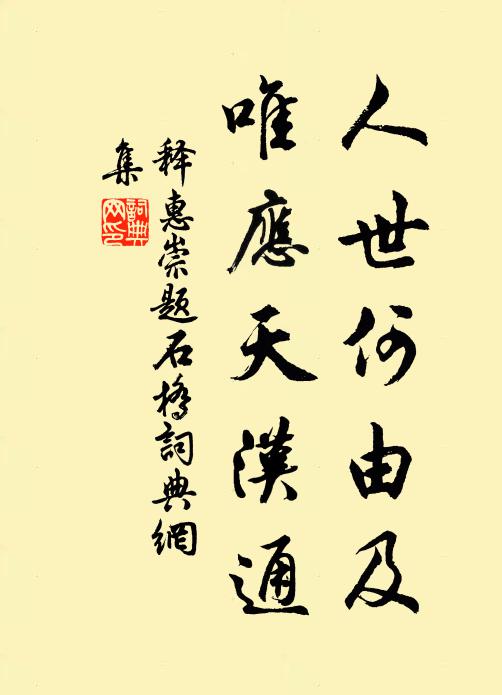 人世何由及
唯應天漢通
释惠崇题石橋詞典網
集
詞典網印